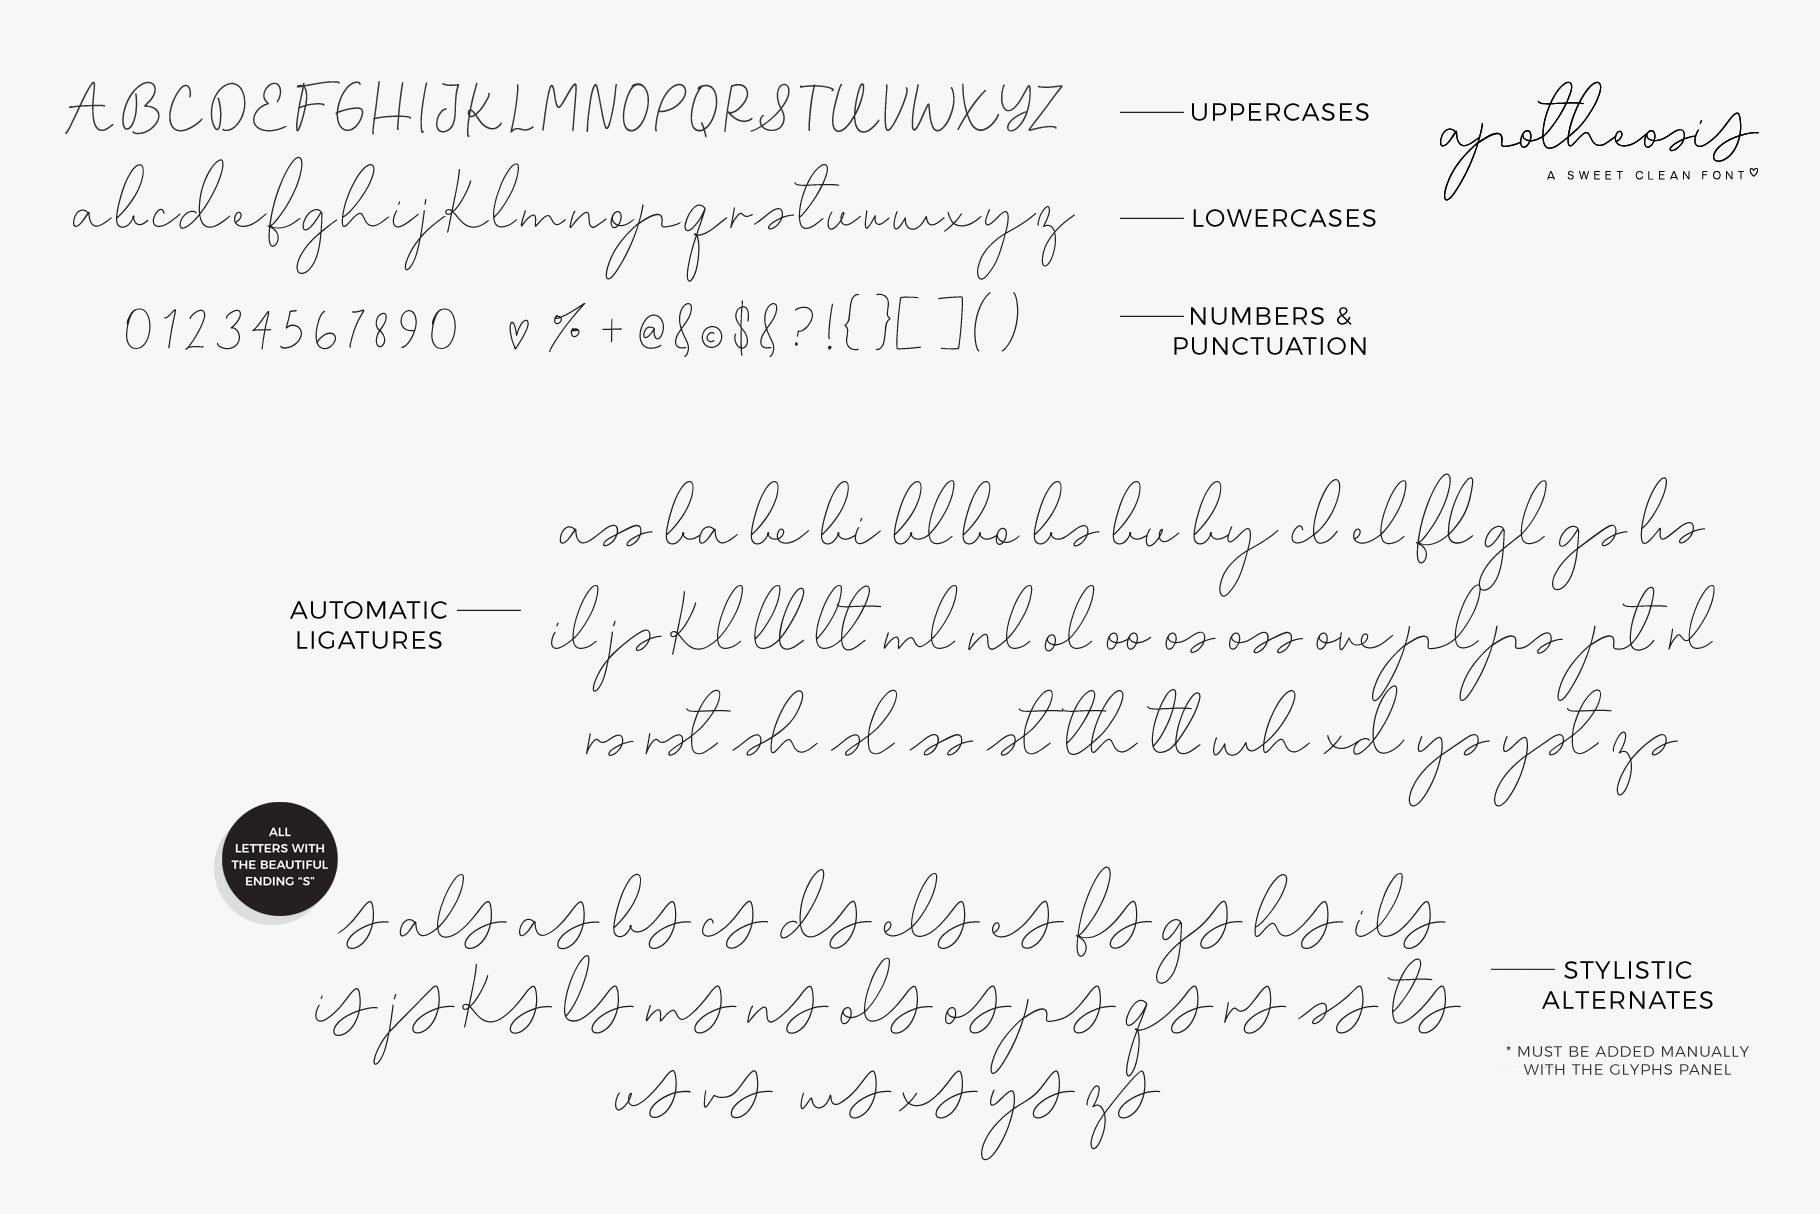 ABCDEFGHIJKLMNOPQRSTUVWXYZ
UPPERCASES
apotheosis
A SWEET CLEAN FONT♡
abcdefghijklmnopqrstuvwxyz
LOWERCASES
01234567890 ♡ % + @ & © $ & ? ! { } [ ] ( )
NUMBERS &
PUNCTUATION
ass ba be bi bl bo bs bu by cl el fl gl gs hs
AUTOMATIC
LIGATURES
il js kl ll lt ml nl ol oo os oss ove pl ps pt rl
rs rst sh sl ss st th tt wh xd ys yst zs
ALL
LETTERS WITH
THE BEAUTIFUL
ENDING “S”
s als as bs cs ds els es fs gs hs ils
is js ks ls ms ns ols os ps qs rs ss ts
us vs ws xs ys zs
STYLISTIC
ALTERNATES
* MUST BE ADDED MANUALLY
WITH THE GLYPHS PANEL